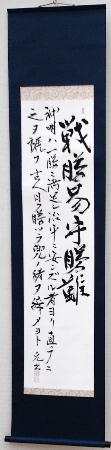 戰勝易守勝難
神明ハ一勝ニ満足シテ治平ニ安ンズル者ヨリ直チニ
之ヲ褫フ古人曰ク勝ツテ兜ノ緒ヲ締メヨト